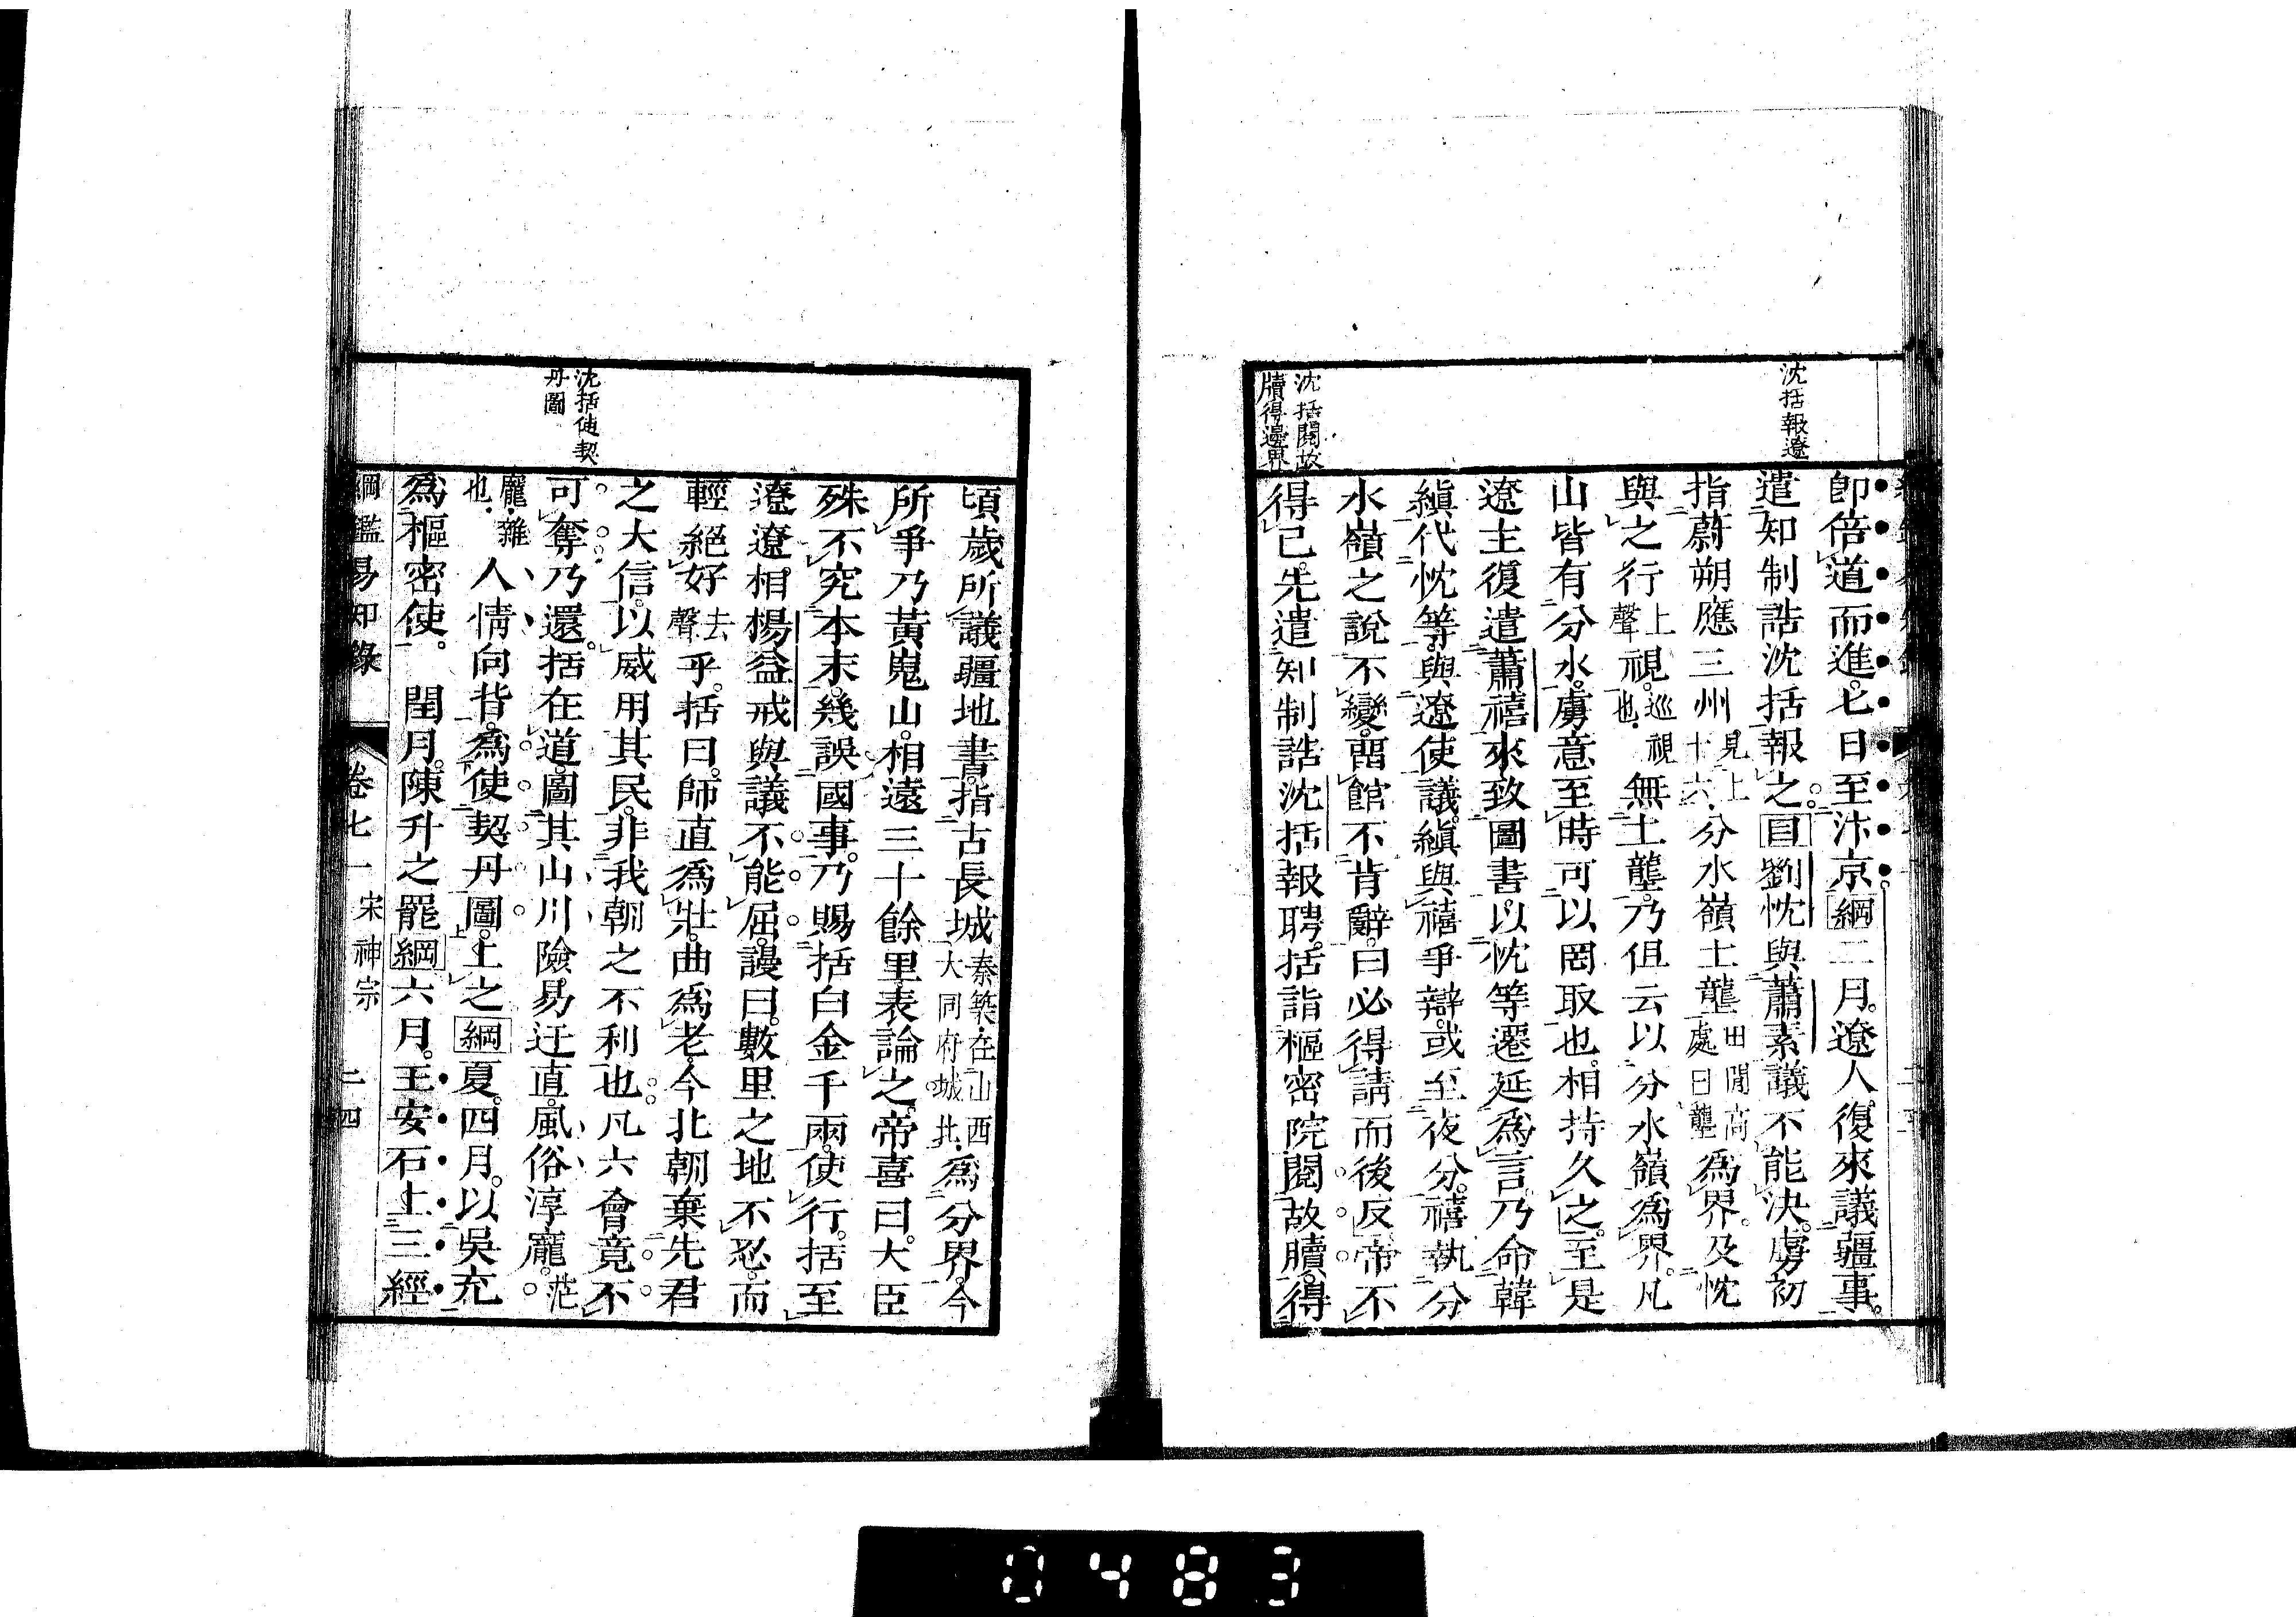 沈括報遼
卽倍道而進。七日至汴京。綱二月。遼人復來議疆事。
遣知制誥沈括報之。目劉忱與蕭素議不能決。虜初
指蔚朔應三州見上十六。分水嶺土壟田閒高處曰壟爲界。及忱
與之行上聲視。巡視也。無土壟。乃但云以分水嶺爲界。凡
山皆有分水。虜意至時可以罔取也。相持久之。至是
遼主復遣蕭禧來致圖書。以忱等遷延爲言。乃命韓
縝代忱等。與遼使議。縝與禧爭辯。或至夜分。禧執分
水嶺之說不變。畱館不肯辭。曰必得請而後反。帝不
沈括閱故
牘得邊界
得已。先遣知制誥沈括報聘。括詣樞密院閱故牘。得
頃歲所議疆地書。指古長城秦築。在山西大同府城北。爲分界。今
所爭乃黃嵬山。相遠三十餘里。表論之。帝喜曰。大臣
殊不究本末。幾誤國事。乃賜括白金千兩。使行。括至
遼。遼相楊益戒與議。不能屈。謾曰。數里之地不忍。而
輕絕好去聲乎。括曰。師直爲壯。曲爲老。今北朝棄先君
之大信。以威用其民。非我朝之不利也。凡六會竟不
沈括使契
丹圖
可奪乃還。括在道。圖其山川險易迂直。風俗淳龐。茫
龐雜也。人情向背。爲使契丹圖。上之綱夏。四月。以吳充
爲樞密使。閏月。陳升之罷綱六月。王安石上三經
綱鑑易知錄 卷七一 宋神宗 二四
0483